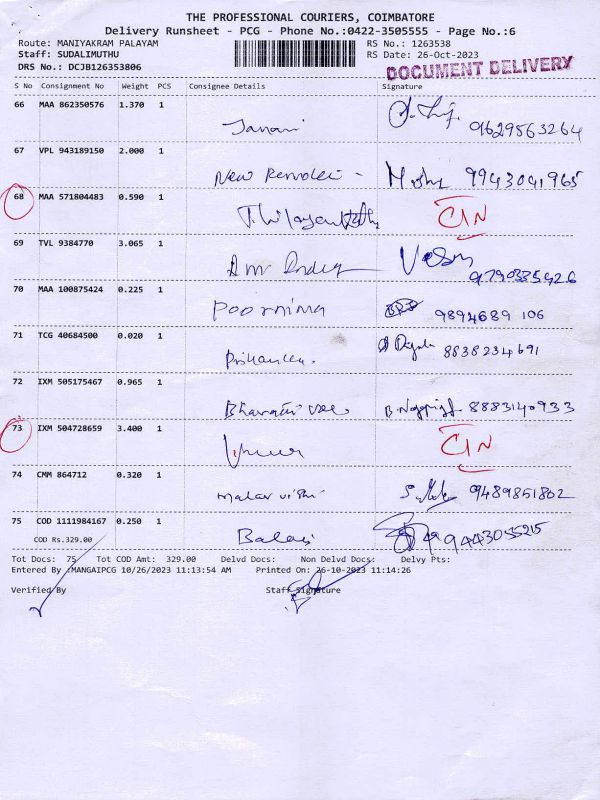 THE PROFESSIONAL COURIERS, COIMBATORE
Delivery Runsheet - PCG - Phone No.:0422-3505555 - Page No.:6
Route: MANIYAKRAM PALAYAM RS No.: 1263538
Staff: SUDALIMUTHU RS Date: 26-Oct-2023
DRS No.: DCJB126353806 DOCUMENT DELIVERY
S No Consignment No Weight PCS Consignee Details Signature
66 MAA 862350576 1.370 1
Janani 9629563264
67 VPL 943189150 2.000 1
New Remolei - 9943041965
68 MAA 571804483 0.590 1
CIN
69 TVL 9384770 3.065 1
9790335426
70 MAA 100875424 0.225 1
Poornima 9894689 106
71 TCG 40684500 0.020 1
8838234691
72 IXM 505175467 0.965 1
Bharathi 8883140933
73 IXM 504728659 3.400 1
CIN
74 CMM 864712 0.320 1
Malar vizhi 9489851802
75 COD 1111984167 0.250 1
COD Rs.329.00 Balaji 9443055215
Tot Docs: 75 Tot COD Amt: 329.00 Delvd Docs: Non Delvd Docs: Delvy Pts:
Entered By :MANGAIPCG 10/26/2023 11:13:54 AM Printed On: 26-10-2023 11:14:26
Verified By Staff Signature